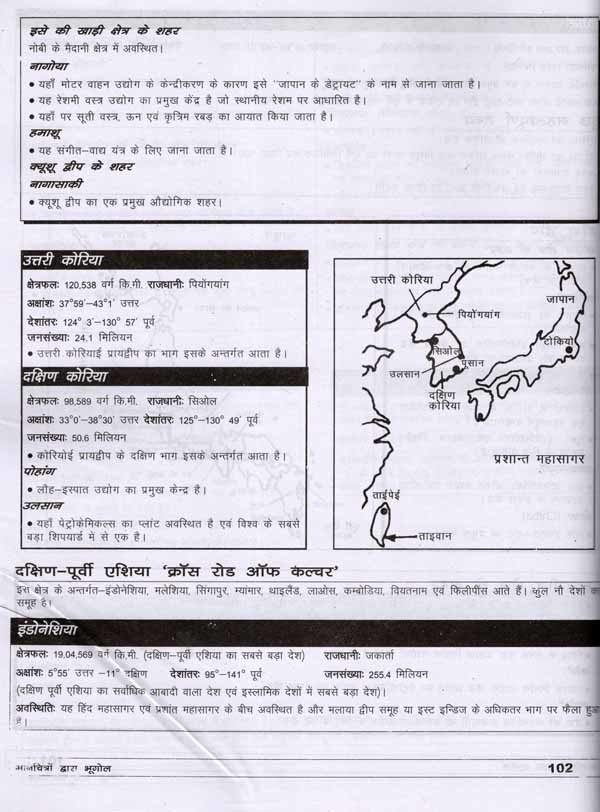 इसे की खाड़ी क्षेत्र के शहर
नोबी के मैदानी क्षेत्र में अवस्थित।
नागोया
• यहाँ मोटर वाहन उद्योग के केन्द्रीकरण के कारण इसे "जापान के डेट्रायट" के नाम से जाना जाता है।
• यह रेशमी वस्त्र उद्योग का प्रमुख केंद्र है जो स्थानीय रेशम पर आधारित है।
• यहाँ पर सूती वस्त्र, ऊन एवं कृत्रिम रबड़ का आयात किया जाता है।
हमाशू
• यह संगीत-वाद्य यंत्र के लिए जाना जाता है।
क्यूशू द्वीप के शहर
नागासाकी
• क्यूशू द्वीप का एक प्रमुख औद्योगिक शहर।
उत्तरी कोरिया
क्षेत्रफलः 120,538 वर्ग कि.मी. राजधानीः पियोंगयांग
अक्षांशः 37°59'–43°1' उत्तर
देशांतरः 124° 3'–130° 57' पूर्व
जनसंख्याः 24.1 मिलियन
• उत्तरी कोरियाई प्रायद्वीप का भाग इसके अन्तर्गत आता है।
दक्षिण कोरिया
क्षेत्रफलः 98,589 वर्ग कि.मी. राजधानीः सिओल
अक्षांशः 33°0'–38°30' उत्तर देशांतरः 125°–130° 49' पूर्व
जनसंख्याः 50.6 मिलियन
• कोरियोई प्रायद्वीप के दक्षिण भाग इसके अन्तर्गत आता है।
पोहांग
• लौह-इस्पात उद्योग का प्रमुख केन्द्र है।
उलसान
• यहाँ पेट्रोकेमिकल्स का प्लांट अवस्थित है एवं विश्व के सबसे
बड़ा शिपयार्ड में से एक है।
उत्तरी कोरिया
जापान
पियोंगयांग
टोकियो
सिओल
पूसान
उलसान
दक्षिण
कोरिया
प्रशान्त महासागर
ताईपेई
ताइवान
दक्षिण-पूर्वी एशिया 'क्रॉस रोड ऑफ कल्चर'
इस क्षेत्र के अन्तर्गत-इंडोनेशिया, मलेशिया, सिंगापुर, म्यांमार, थाइलैंड, लाओस, कम्बोडिया, वियतनाम एवं फिलीपींस आते हैं। कुल नौ देशों का
समूह है।
इंडोनेशिया
क्षेत्रफलः 19,04,569 वर्ग कि.मी. (दक्षिण-पूर्वी एशिया का सबसे बड़ा देश) राजधानीः जकार्ता
अक्षांशः 5°55' उत्तर –11° दक्षिण देशांतरः 95°–141° पूर्व जनसंख्याः 255.4 मिलियन
(दक्षिण पूर्वी एशिया का सर्वाधिक आबादी वाला देश एवं इस्लामिक देशों में सबसे बड़ा देश)।
अवस्थितिः यह हिंद महासागर एवं प्रशांत महासागर के बीच अवस्थित है और मलाया द्वीप समूह या इस्ट इन्डिज के अधिकतर भाग पर फैला हुआ
है।
मानचित्रों द्वारा भूगोल
102